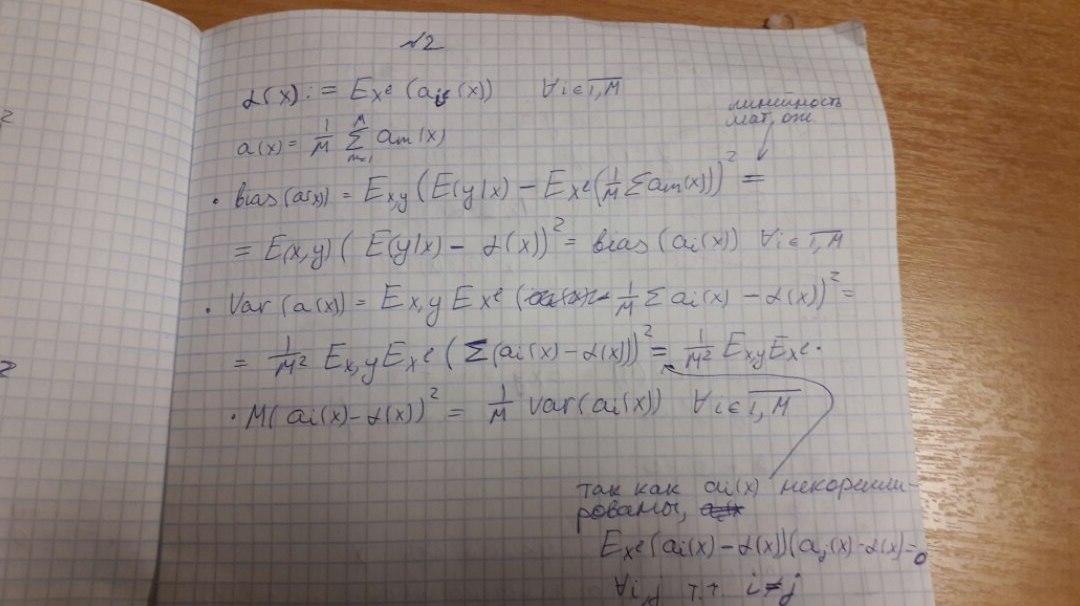 №2
α(x) := E_{X^ℓ}(a_i(x)) ∀i∈\overline{1,M}
a(x) = \frac{1}{M} \sum_{m=1}^{M} a_m(x)
линейность
мат. ож
• bias(a(x)) = E_{x,y}(E(y|x) − E_{X^ℓ}(\frac{1}{M} Σ a_m(x)))^2 =
= E(x,y)(E(y|x) − α(x))^2 = bias(a_i(x)) ∀i∈\overline{1,M}
• Var(a(x)) = E_{x,y} E_{X^ℓ}(\frac{1}{M} Σ a_i(x) − α(x))^2 =
= \frac{1}{M^2} E_{x,y} E_{X^ℓ}(Σ(a_i(x) − α(x)))^2 = \frac{1}{M^2} E_{x,y} E_{X^ℓ} ·
· M(a_i(x) − α(x))^2 = \frac{1}{M} Var(a_i(x)) ∀i∈\overline{1,M}
так как a_i(x) некорелли-
рованы,
E_{X^ℓ}(a_i(x) − α(x))(a_j(x) − α(x) = 0
∀i,j т.т. i≠j